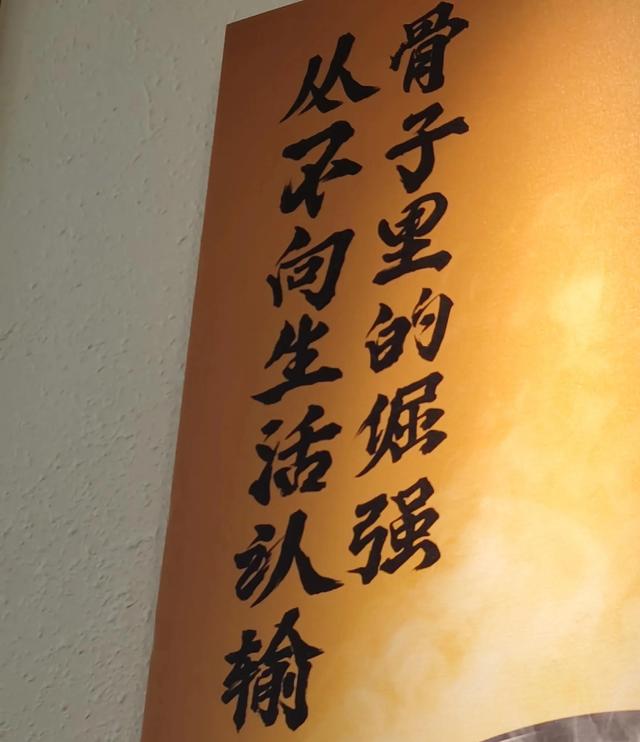 骨子里的倔强
从不向生活认输